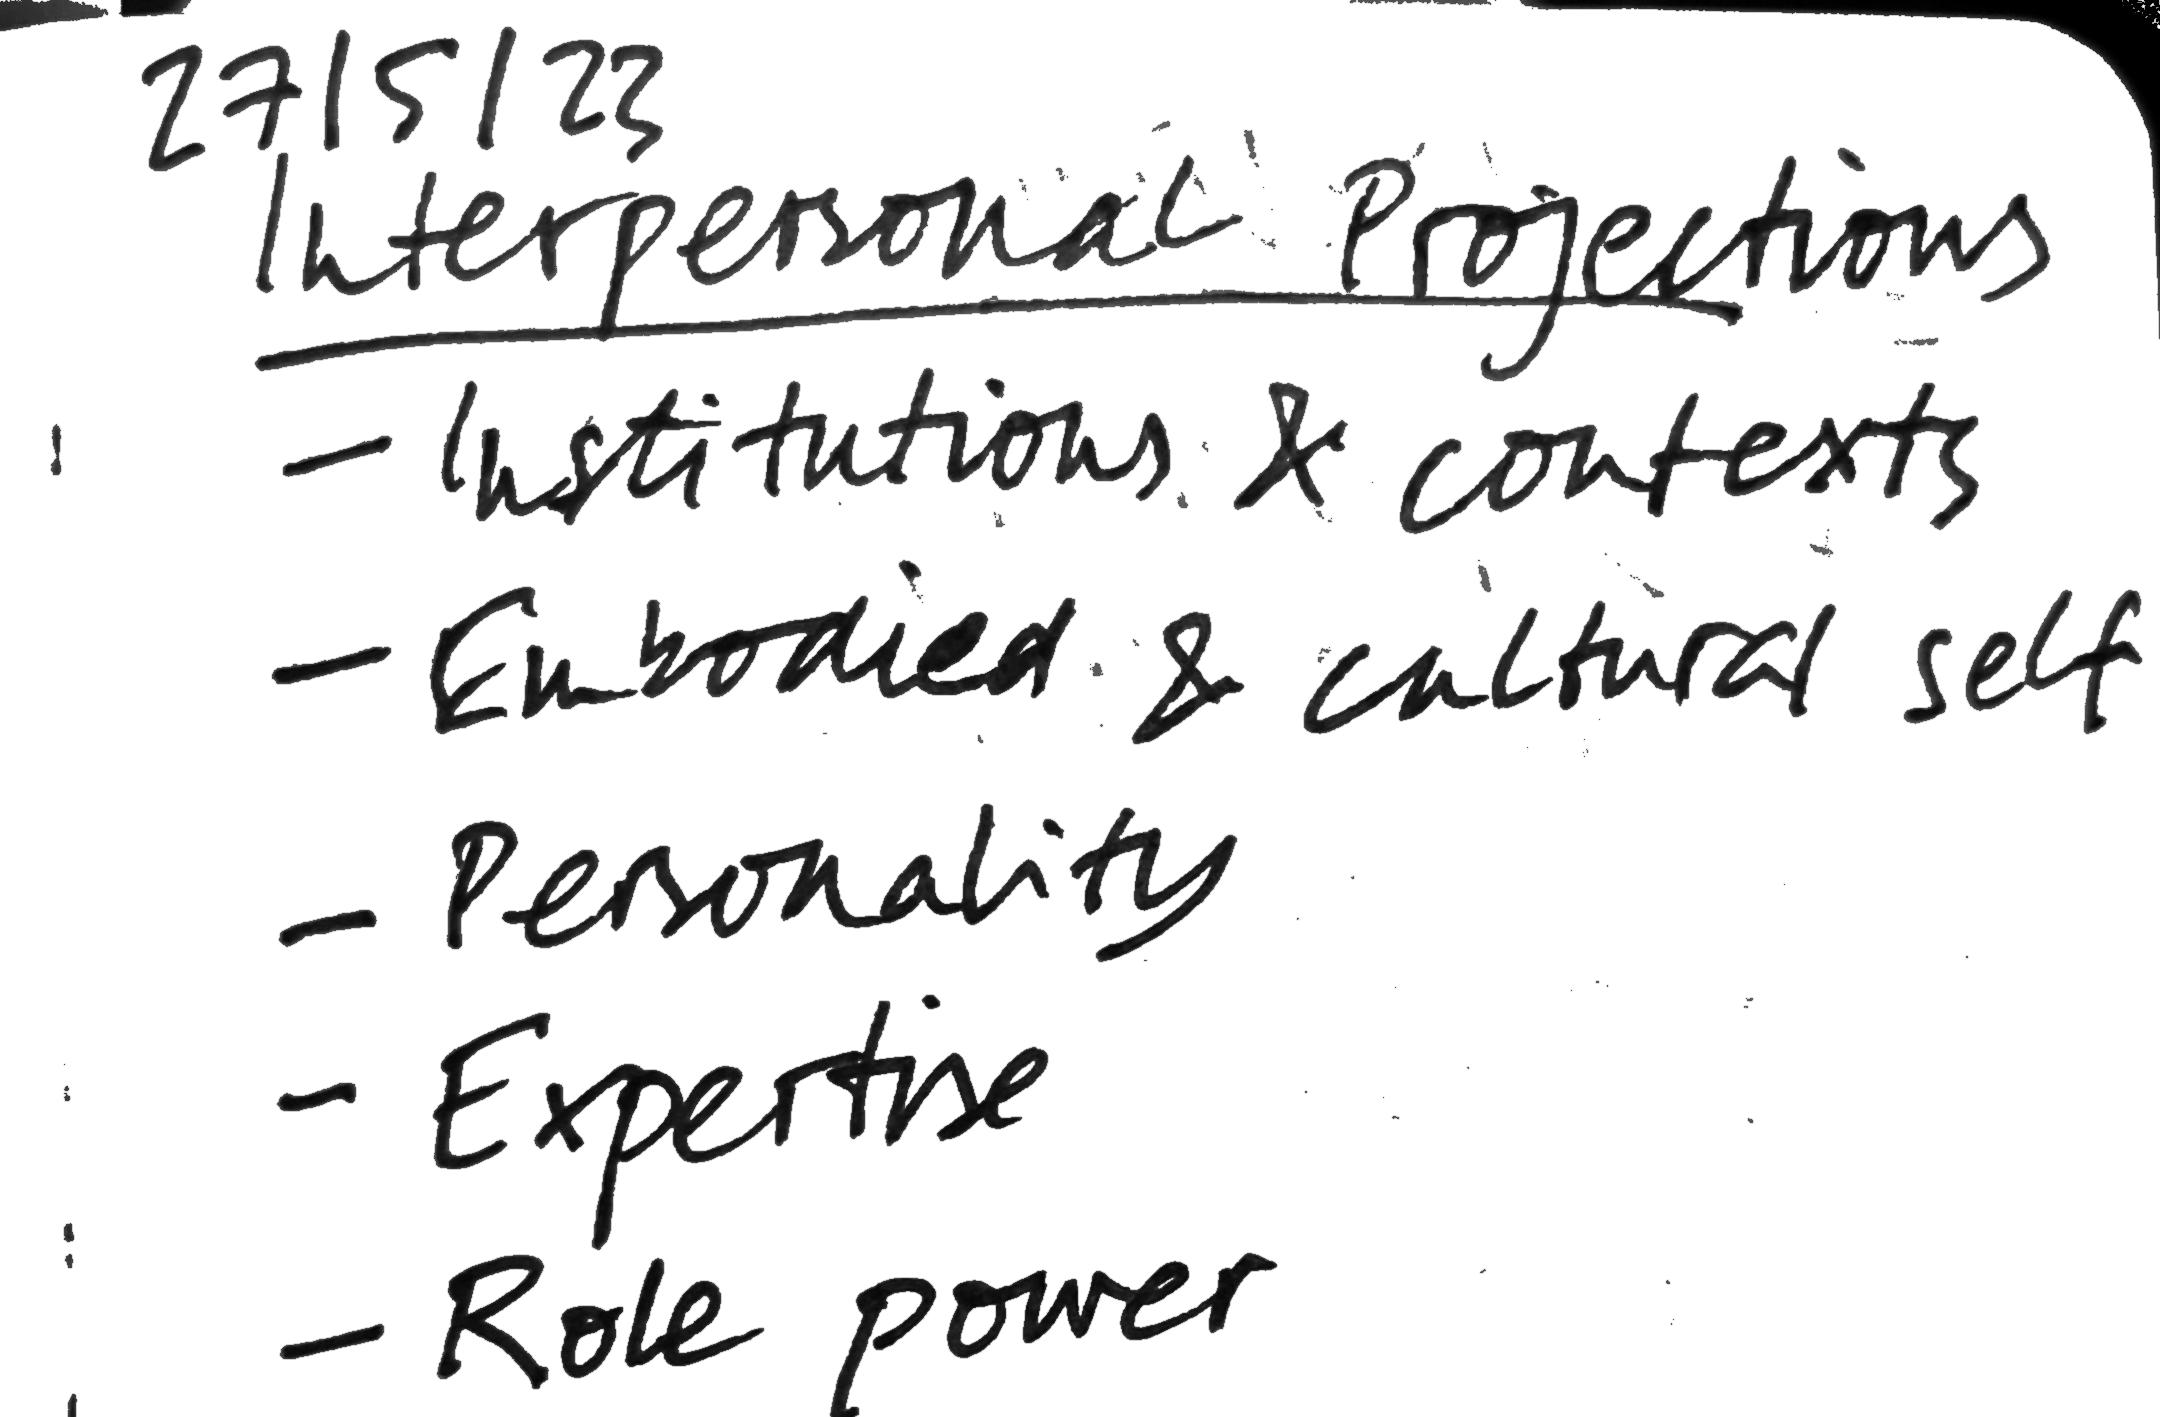 27/5/23
Interpersonal Projections
- Institutions & contexts
- Embodied & cultural self
- Personality
- Expertise
- Role power